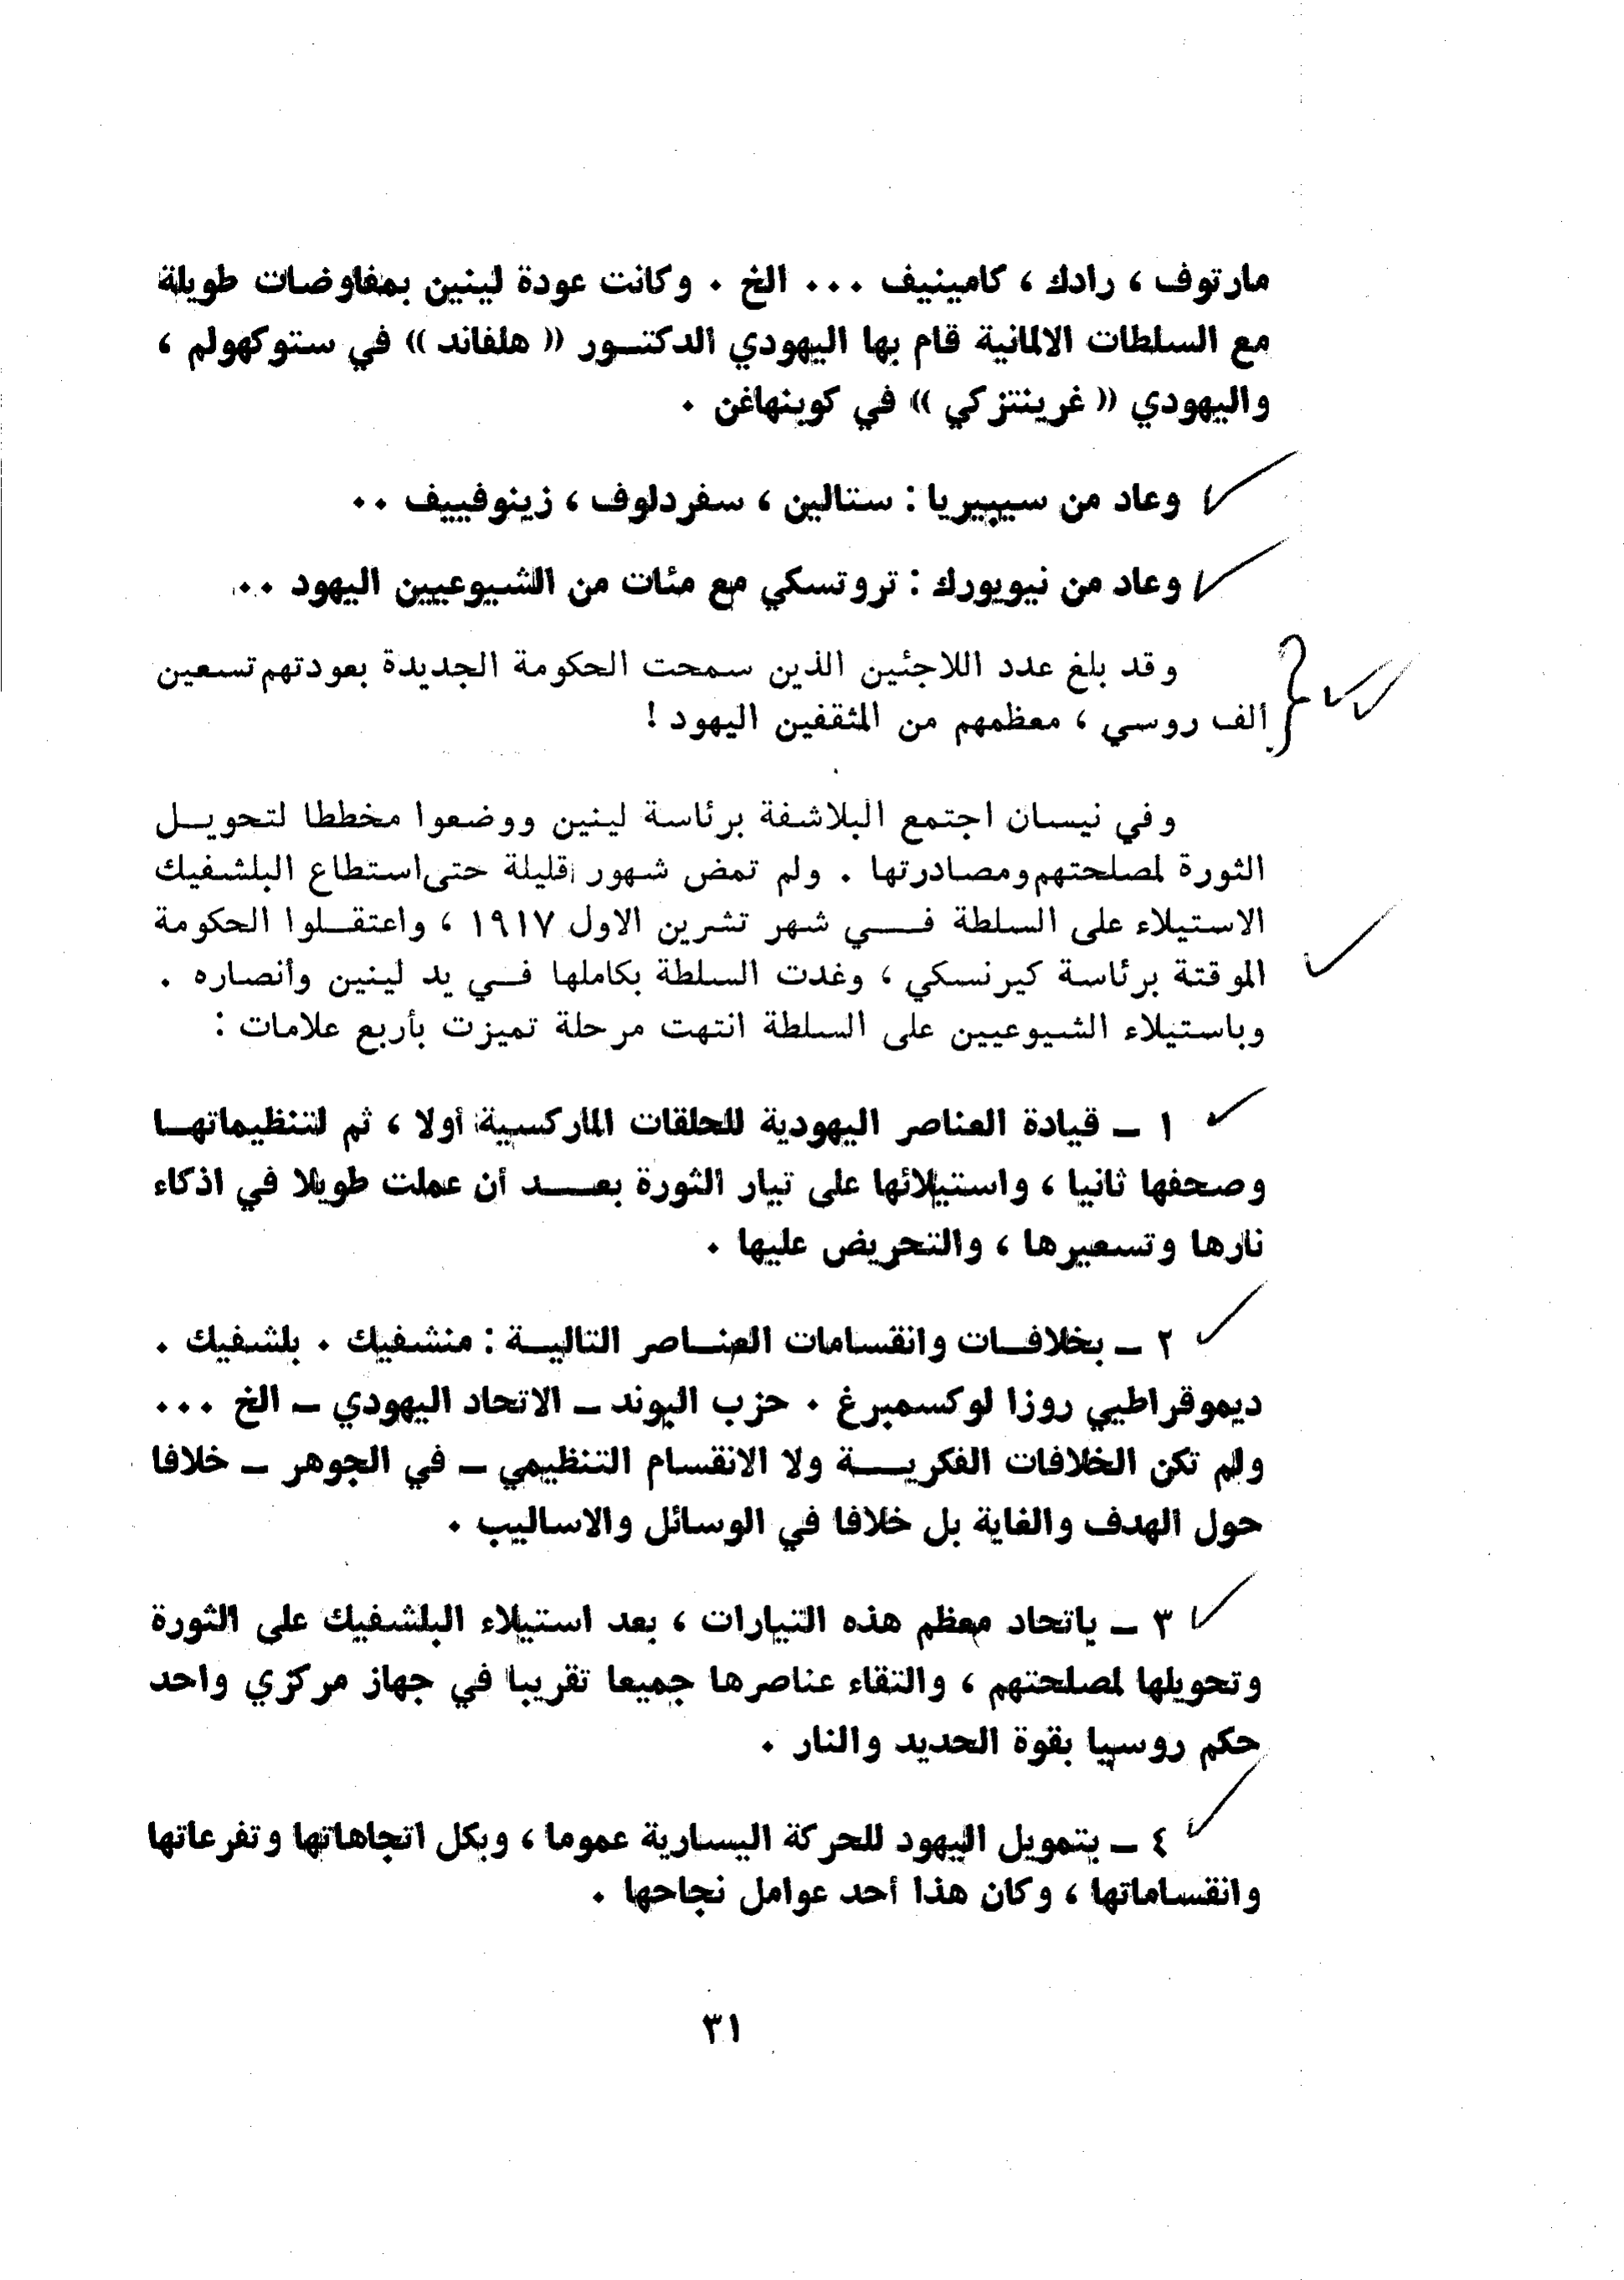 مارتوف ، رادك ، كامينيف ... الخ . وكانت عودة لينين بمفاوضات طويلة
مع السلطات الالمانية قام بها اليهودي الدكتـور (( هلفاند )) في ستوكهولم ،
واليهودي (( غرينتزكي )) في كوبنهاغن .
وعاد من سيبيريا : ستالين ، سفردلوف ، زينوفييف ..
وعاد من نيويورك : تروتسكي مع مئات من الشيوعيين اليهود ..
وقد بلغ عدد اللاجئين الذين سمحت الحكومة الجديدة بعودتهم تسعين
الف روسي ، معظمهم من المثقفين اليهود !
وفي نيسان اجتمع البلاشفة برئاسة لينين ووضعوا مخططا لتحويـل
الثورة لمصلحتهم ومصادرتها . ولم تمض شهور قليلة حتى استطاع البلشفيك
الاستيلاء على السلطة فــي شهر تشرين الاول ١٩١٧ ، واعتقـلوا الحكومة
الموقتة برئاسة كيرنسكي ، وغدت السلطة بكاملها فـي يد لينين وأنصاره .
وباستيلاء الشيوعيين على السلطة انتهت مرحلة تميزت بأربع علامات :
١ ـ قيادة العناصر اليهودية للحلقات الماركسية أولا ، ثم لتنظيماتهـا
وصحفها ثانيا ، واستيلائها على تيار الثورة بعــد أن عملت طويلا في اذكاء
نارها وتسعيرها ، والتحريض عليها .
٢ ـ بخلافـات وانقسامات العنـاصر التاليـة : منشفيك . بلشفيك .
ديموقراطيي روزا لوكسمبرغ . حزب البوند ـ الاتحاد اليهودي ـ الخ ...
ولم تكن الخلافات الفكريــة ولا الانقسام التنظيمي ـ في الجوهر ـ خلافا
حول الهدف والغاية بل خلافا في الوسائل والاساليب .
٣ ـ باتحاد معظم هذه التيارات ، بعد استيلاء البلشفيك على الثورة
وتحويلها لمصلحتهم ، والتقاء عناصرها جميعا تقريبا في جهاز مركزي واحد
حكم روسيا بقوة الحديد والنار .
٤ ـ بتمويل اليهود للحركة اليسارية عموما ، وبكل اتجاهاتها وتفرعاتها
وانقساماتها ، وكان هذا أحد عوامل نجاحها .
٣١